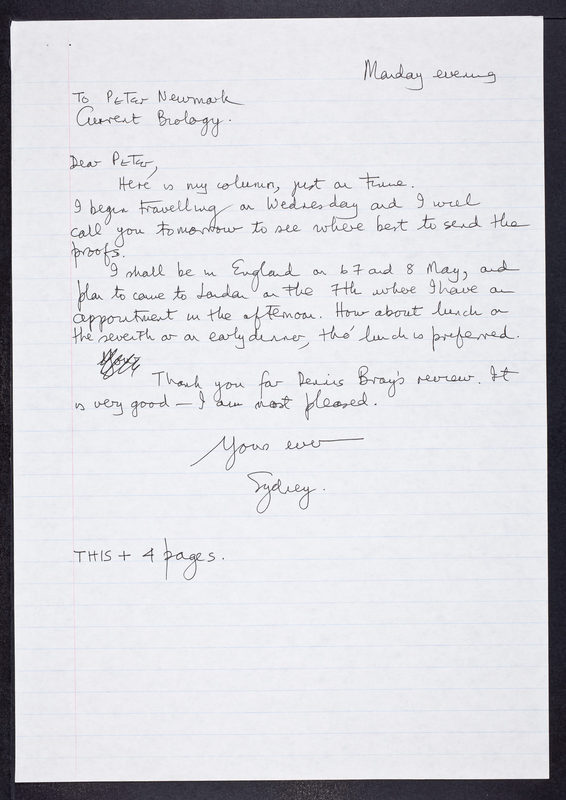 Monday evening
To Peter Newmark
Current Biology.
Dear Peter,
Here is my column, just on time.
I begin travelling on Wednesday and I will
call you tomorrow to see where best to send the
proofs.
I shall be in England on 6 7 and 8 May, and
plan to come to London on the 7th where I have an
appointment in the afternoon. How about lunch on
the seventh or an early dinner, tho' lunch is preferred.
Thank you for Dennis Bray's review. It
is very good — I am most pleased.
Yours ever
Sydney.
THIS + 4 pages.